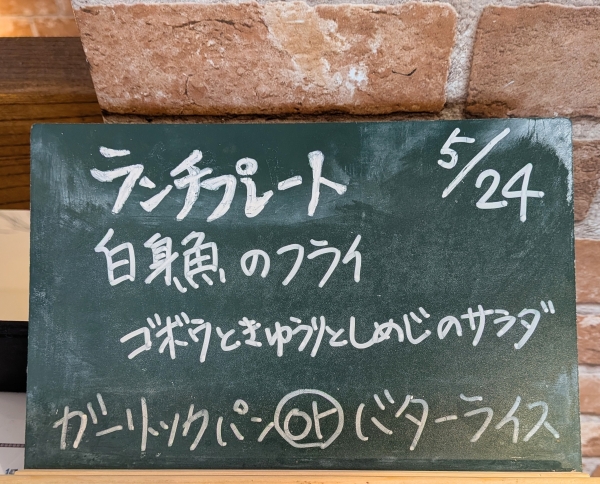 ランチプレート 5/24
白身魚のフライ
ゴボウときゅうりとしめじのサラダ
ガーリックパン or バターライス